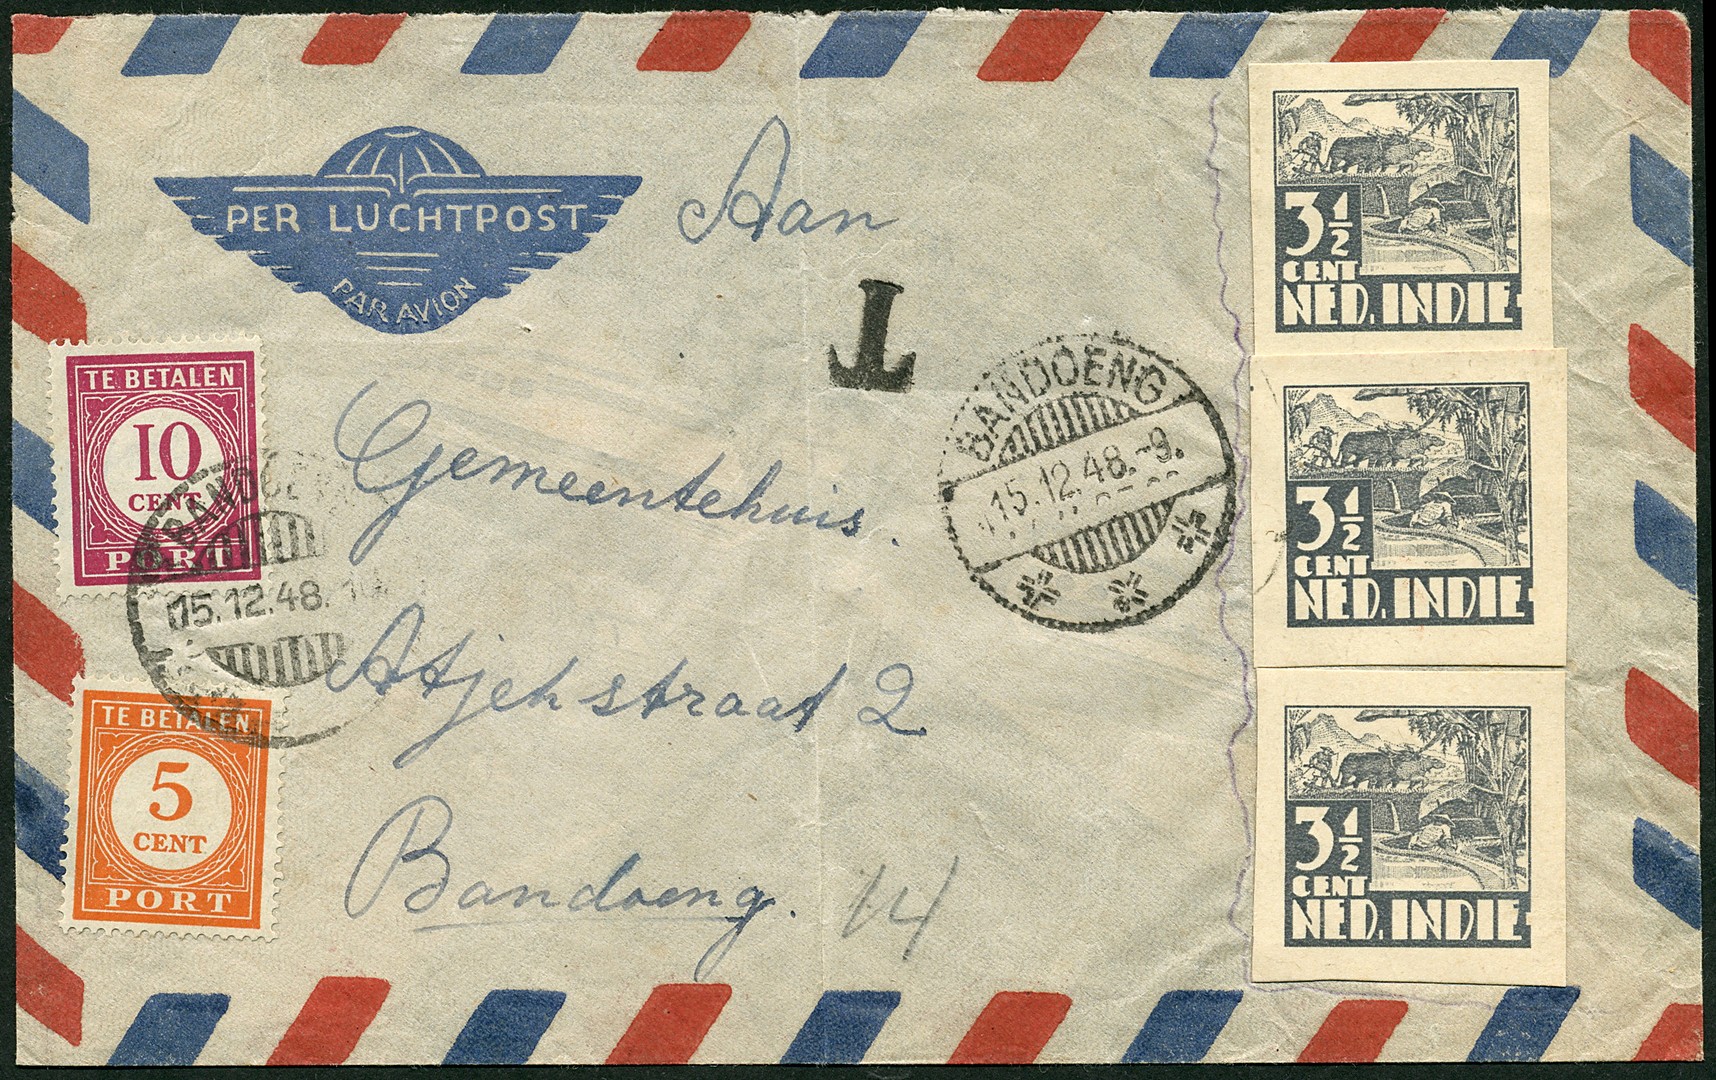 PER LUCHTPOST
PAR AVION
Aan
T
Gemeentehuis.
Atjehstraat 2
Bandoeng.
14
TE BETALEN
10
CENT
PORT
TE BETALEN
5
CENT
PORT
BANDOENG
15.12.48.
BANDOENG
15.12.48.-9.
3 1/2
CENT
NED. INDIE
3 1/2
CENT
NED. INDIE
3 1/2
CENT
NED. INDIE